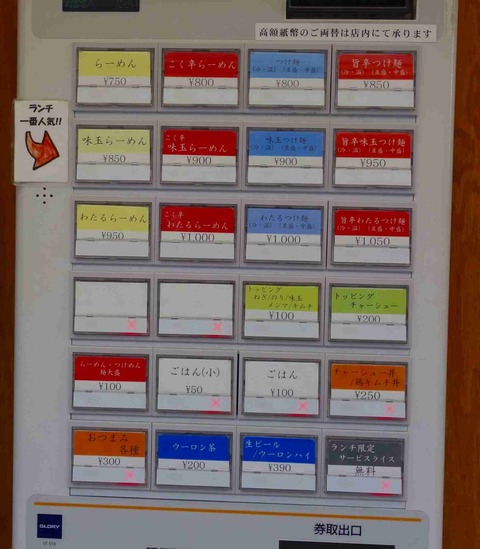 高額紙幣のご両替は店内にて承ります
らーめん
¥750
こく辛らーめん
¥800
つけ麺
(冷・温)(並盛・中盛)
¥800
旨辛つけ麺
(冷・温)(並盛・中盛)
¥850
ランチ
一番人気!!
味玉らーめん
¥850
こく辛
味玉らーめん
¥900
味玉つけ麺
(冷・温)(並盛・中盛)
¥900
旨辛味玉つけ麺
(冷・温)(並盛・中盛)
¥950
わたるらーめん
¥950
こく辛
わたるらーめん
¥1,000
わたるつけ麺
(冷・温)(並盛・中盛)
¥1,000
旨辛わたるつけ麺
(冷・温)(並盛・中盛)
¥1,050
トッピング
ねぎ/のり/味玉
メンマ/キムチ
¥100
トッピング
チャーシュー
¥200
らーめん・つけめん
麺大盛
¥100
ごはん(小)
¥50
ごはん
¥100
チャーシュー丼
/鶏キムチ丼
¥250
おつまみ
各種
¥300
ウーロン茶
¥200
生ビール
/ウーロンハイ
¥390
ランチ限定
サービスライス
無料
GLORY
券取出口